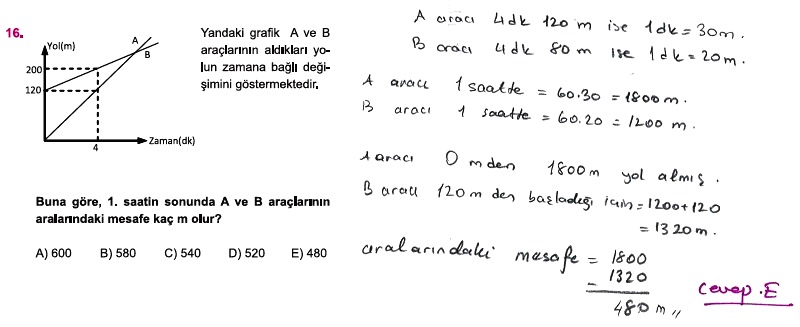 16.
Yol(m)
A
B
200
120
4
Zaman(dk)
Yandaki grafik A ve B
araçlarının aldıkları yo-
lun zamana bağlı deği-
şimini göstermektedir.
Buna göre, 1. saatin sonunda A ve B araçlarının
aralarındaki mesafe kaç m olur?
A) 600 B) 580 C) 540 D) 520 E) 480
A aracı 4dk 120 m ise 1dk = 30m.
B aracı 4dk 80 m ise 1dk = 20m.
A aracı 1 saatte = 60.30 = 1800 m.
B aracı 1 saatte = 60.20 = 1200 m.
A aracı 0 mden 1800m yol almış.
B aracı 120m den başladığı için = 1200+120
= 1320m.
aralarındaki mesafe = 1800
- 1320
480 m,,
Cevap.E